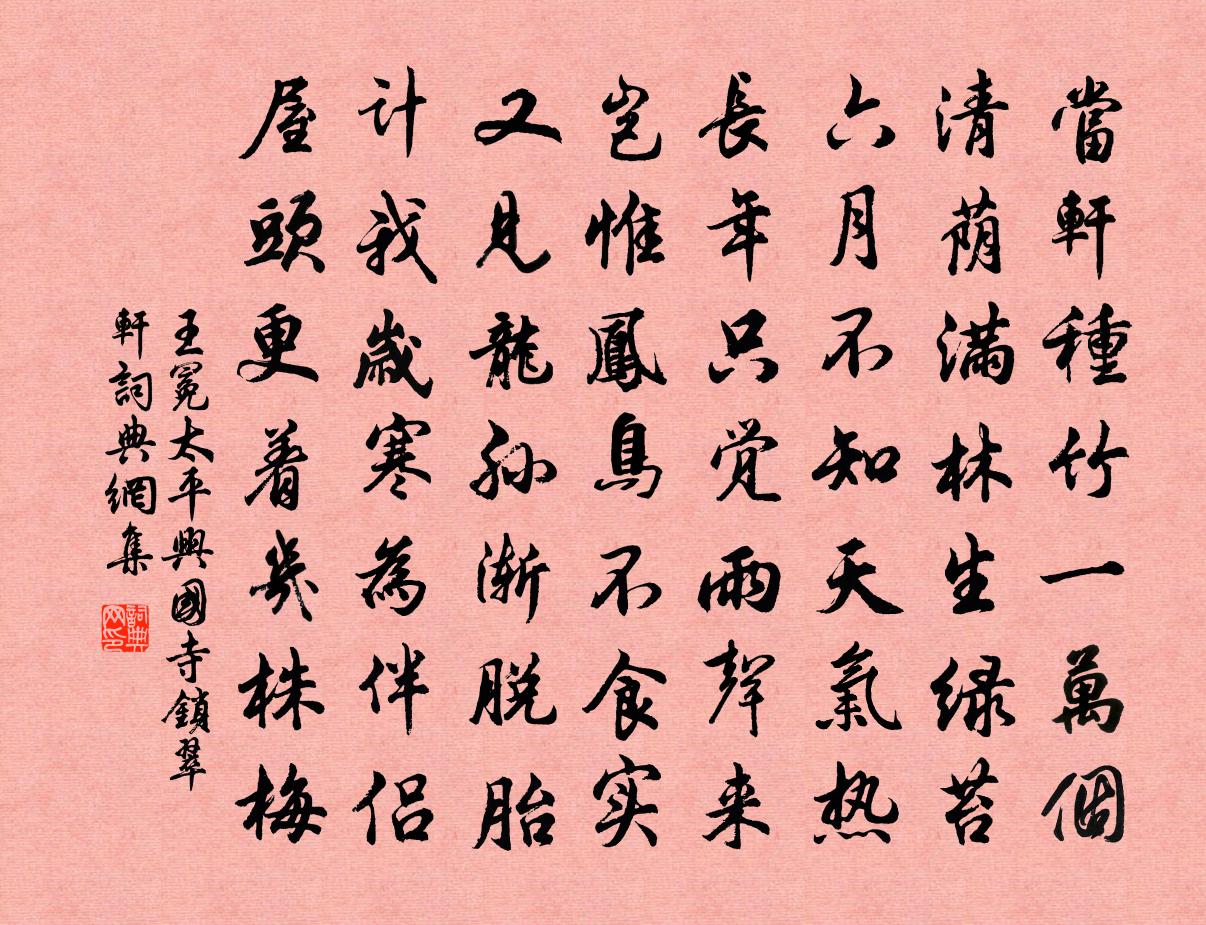 當軒種竹一萬個
清荫满林生绿苔
六月不知天氣热
長年只觉雨聲来
岂惟鳳鳥不食实
又見龍孙渐脱胎
计我歲寒為伴侣
屋頭更着幾株梅
王冕太平興國寺鎖翠
軒詞典網集
詞典网印